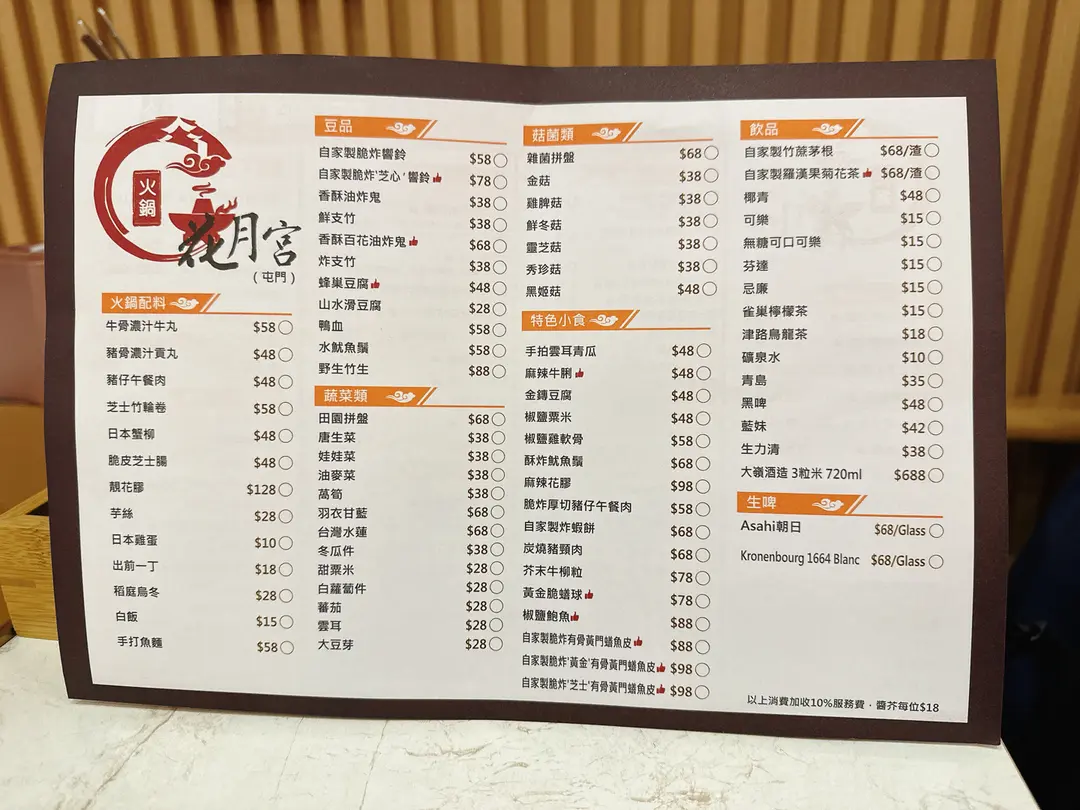 火鍋
花月宮
(屯門)
火鍋配料
牛骨濃汁牛丸 $58
豬骨濃汁貢丸 $48
豬仔午餐肉 $48
芝士竹輪卷 $58
日本蟹柳 $48
脆皮芝士腸 $48
靚花膠 $128
芋絲 $28
日本雞蛋 $10
出前一丁 $18
稻庭烏冬 $28
白飯 $15
手打魚麵 $58
豆品
自家製脆炸響鈴 $58
自家製脆炸'芝心'響鈴 $78
香酥油炸鬼 $38
鮮支竹 $38
香酥百花油炸鬼 $68
炸支竹 $38
蜂巢豆腐 $48
山水滑豆腐 $28
鴨血 $58
水魷魚鬚 $58
野生竹笙 $88
蔬菜類
田園拼盤 $68
唐生菜 $38
娃娃菜 $38
油麥菜 $38
萵筍 $38
羽衣甘藍 $68
台灣水蓮 $68
冬瓜件 $38
甜粟米 $28
白蘿蔔件 $28
蕃茄 $28
雲耳 $28
大豆芽 $28
菇菌類
雜菌拼盤 $68
金菇 $38
雞脾菇 $38
鮮冬菇 $38
靈芝菇 $38
秀珍菇 $38
黑姬菇 $48
特色小食
手拍雲耳青瓜 $48
麻辣牛脷 $48
金磚豆腐 $48
椒鹽粟米 $48
椒鹽雞軟骨 $58
酥炸魷魚鬚 $68
麻辣花膠 $98
脆炸厚切豬仔午餐肉 $58
自家製炸蝦餅 $68
炭燒豬頸肉 $68
芥末牛柳粒 $78
黃金脆蟮球 $78
椒鹽鮑魚 $88
自家製脆炸有骨黃門鱔魚皮 $88
自家製脆炸'黃金'有骨黃門鱔魚皮 $98
自家製脆炸'芝士'有骨黃門鱔魚皮 $98
飲品
自家製竹蔗茅根 $68/渣
自家製羅漢果菊花茶 $68/渣
椰青 $48
可樂 $15
無糖可口可樂 $15
芬達 $15
忌廉 $15
雀巢檸檬茶 $15
津路烏龍茶 $18
礦泉水 $10
青島 $35
黑啤 $48
藍妹 $42
生力清 $38
大嶺酒造 3粒米 720ml $688
生啤
Asahi朝日 $68/Glass
Kronenbourg 1664 Blanc $68/Glass
以上消費加收10%服務費，醬芥每位$18